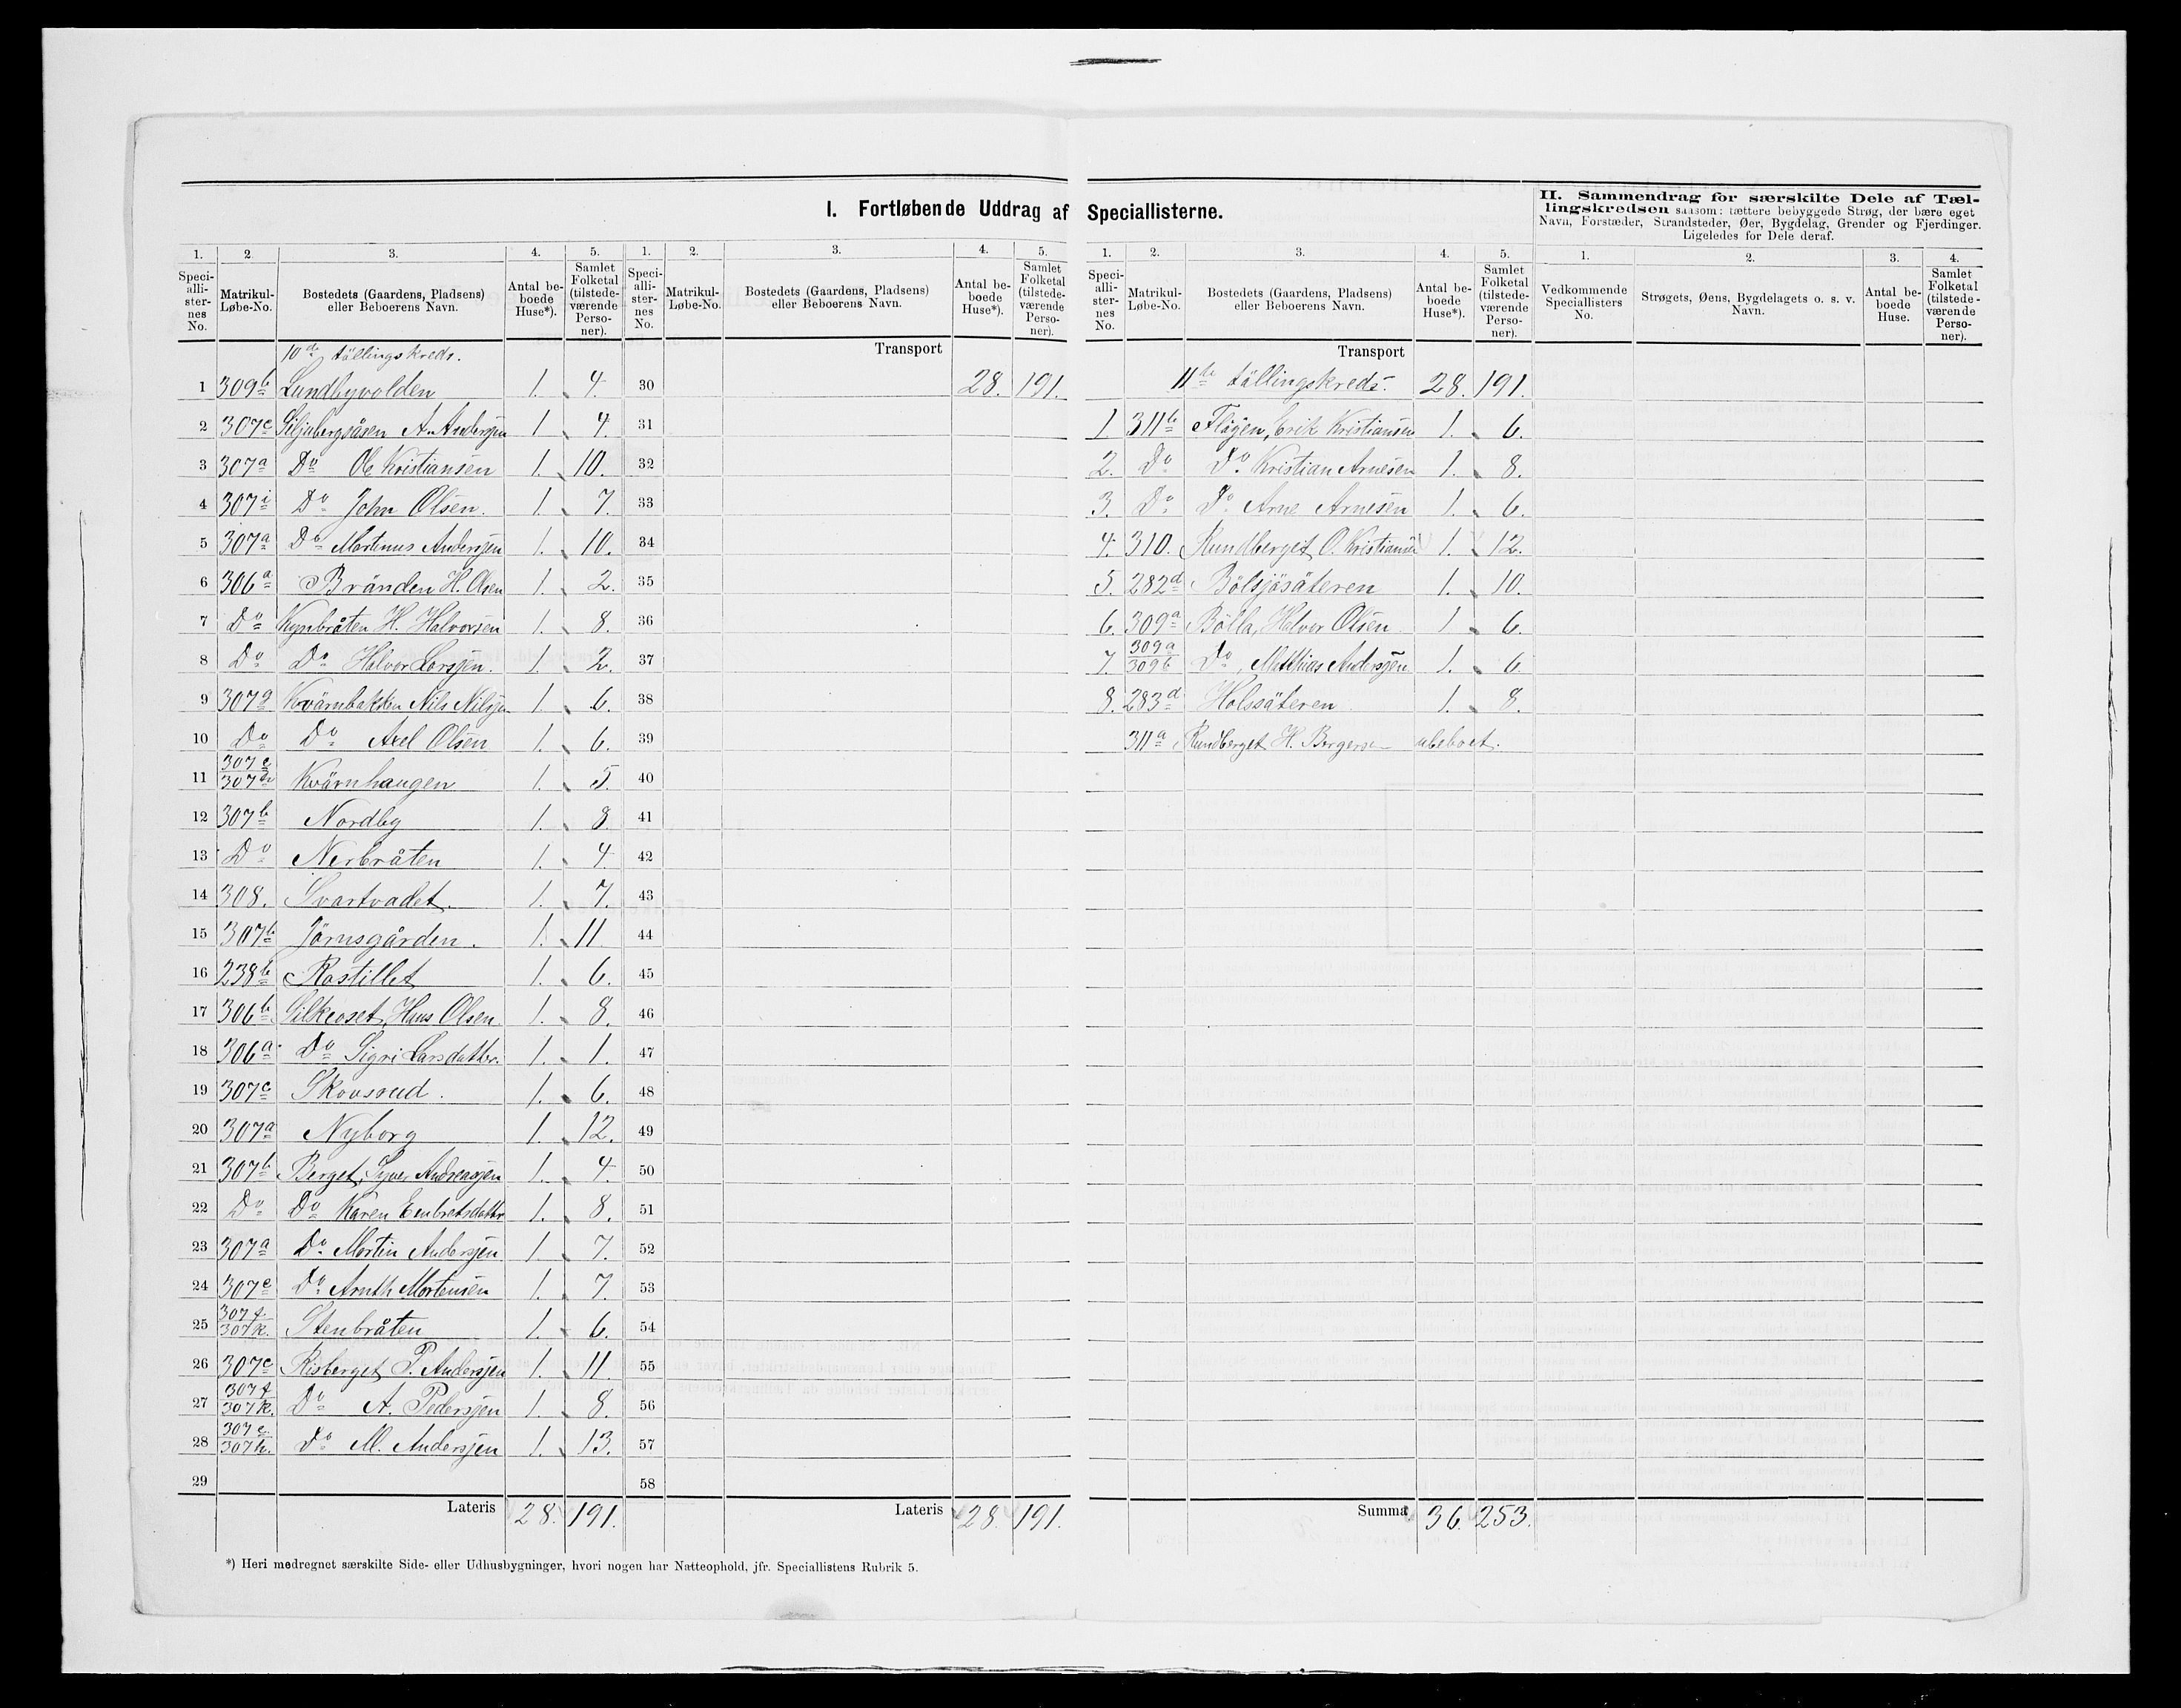 I. Fortløbende Uddrag af Speciallisterne.
II. Sammendrag for særskilte Dele af Tæl-
lingskredsen saasom: tættere bebyggede Strøg, der bære eget
Navn, Forstæder, Strandsteder, Øer, Bygdelag, Grender og Fjerdinger.
Ligeledes for Dele deraf.
1. 2 3. 4. 5. 1. 2. 3. 4. 5. 1. 2. 3. 4. 5. 1. 2. 3. 4.
Speci-alli-ster-nes No. Matrikul-Løbe-No. Bostedets (Gaardens, Pladsens) eller Beboerens Navn. Antal be-boede Huse*). Samlet Folketal (tilstede-værende Perso-ner).
Speci-alli-ster-nes No. Matrikul-Løbe-No. Bostedets (Gaardens, Pladsens) eller Beboerens Navn. Antal be-boede Huse*). Samlet Folketal (tilstede-værende Perso-ner).
Speci-alli-ster-nes No. Matrikul-Løbe-No. Bostedets (Gaardens, Pladsens) eller Beboerens Navn. Antal be-boede Huse*). Samlet Folketal (tilstede-værende Perso-ner).
Vedkommende Speciallisters No. Strøgets, Øens, Bygdelagets o. s. v. Navn. Antal be-boede Huse. Samlet Folketal (tilstede-værende Perso-ner).
10de tällingskreds.
1 309b Lundbyvolden 1. 4.
2 307c Siljubergsåsen A. Andersjen 1. 4.
3 307a Do Ole Kristiansen 1. 10.
4 307i Do John Olsen. 1. 7.
5 307a Do Martinus Andersjen 1. 10.
6 306a Bränden H. Olsen 1. 2.
7 Do Kynbråten H. Halvorsen 1. 8.
8 Do Do Halvor Larsjen. 1. 2.
9 307g Kvärnbakken Nils Nilsjen 1. 6.
10 Do Do Axel Olsen 1. 6.
11 307e 307h Kvärnhaugen 1. 5.
12 307b Nordby 1. 8.
13 Do Nerbråten 1. 4
14 308. Svartvadet. 1. 7.
15 307b Jörnsgården. 1. 11
16 238b Rastillet 1. 6.
17 306b Silkeoset, Hans Olsen 1. 8.
18 306a Do Sigri Larsdatter. 1. 1.
19 307c Skovsrud. 1. 6.
20 307a Nyborg 1. 12.
21 307b Berget, Syver Andreasjen 1. 4.
22 Do Do Karen Embretsdatter 1. 8.
23 307a Do Martin Andersjen 1. 7.
24 307e Do Arnth Mortensen 1. 7.
25 307f. 307k. Stenbråten 1. 6.
26 307c Risberget P. Andersjen 1. 11.
27 307f 307k. Do A. Pedersjen 1. 8.
28 307e 307h. Do M. Andersjen 1. 13.
29
Lateris 28. 191.
Transport
30 28. 191.
31
32
33
34
35
36
37
38
39
40
41
42
43
44
45
46
47
48
49
50
51
52
53
54
55
56
57
58
Lateris 28. 191.
Transport
11te tällingskreds. 28. 191.
1 311b Flägen, Erik Kristiansen 1. 6.
2. Do Do Kristian Arnesen 1. 8.
3. Do Do Arne Arnesen 1. 6.
4. 310. Rundberget, O. Kristiansen 1. 12.
5. 282d Bölsjösäteren 1. 10.
6. 309a Bölla, Halvor Olsen 1 6.
7. 309a 309b Do, Matthias Andersjen 1. 6
8. 283d Holssäteren 1. 8.
311a Rundberget H. Bergersen ubeboet.
Summa 36. 253.
*) Heri medregnet særskilte Side- eller Udhusbygninger, hvori nogen har Natteophold, jfr. Speciallistens Rubrik 5.